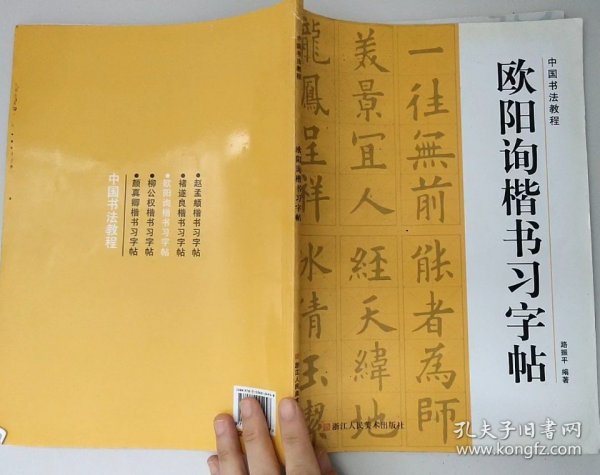 中国书法教程
欧阳询楷书习字帖
路振平 编著
一往無前
能者為師
美景宜人
經天緯地
龍鳳呈祥
冰清玉潔
浙江人民美术出版社
中国书法教程
欧阳询楷书习字帖
浙江人民美
赵孟頫楷书习字帖
褚遂良楷书习字帖
欧阳询楷书习字帖
柳公权楷书习字帖
颜真卿楷书习字帖
中国书法教程
孔夫子旧书网
www.kongfz.com